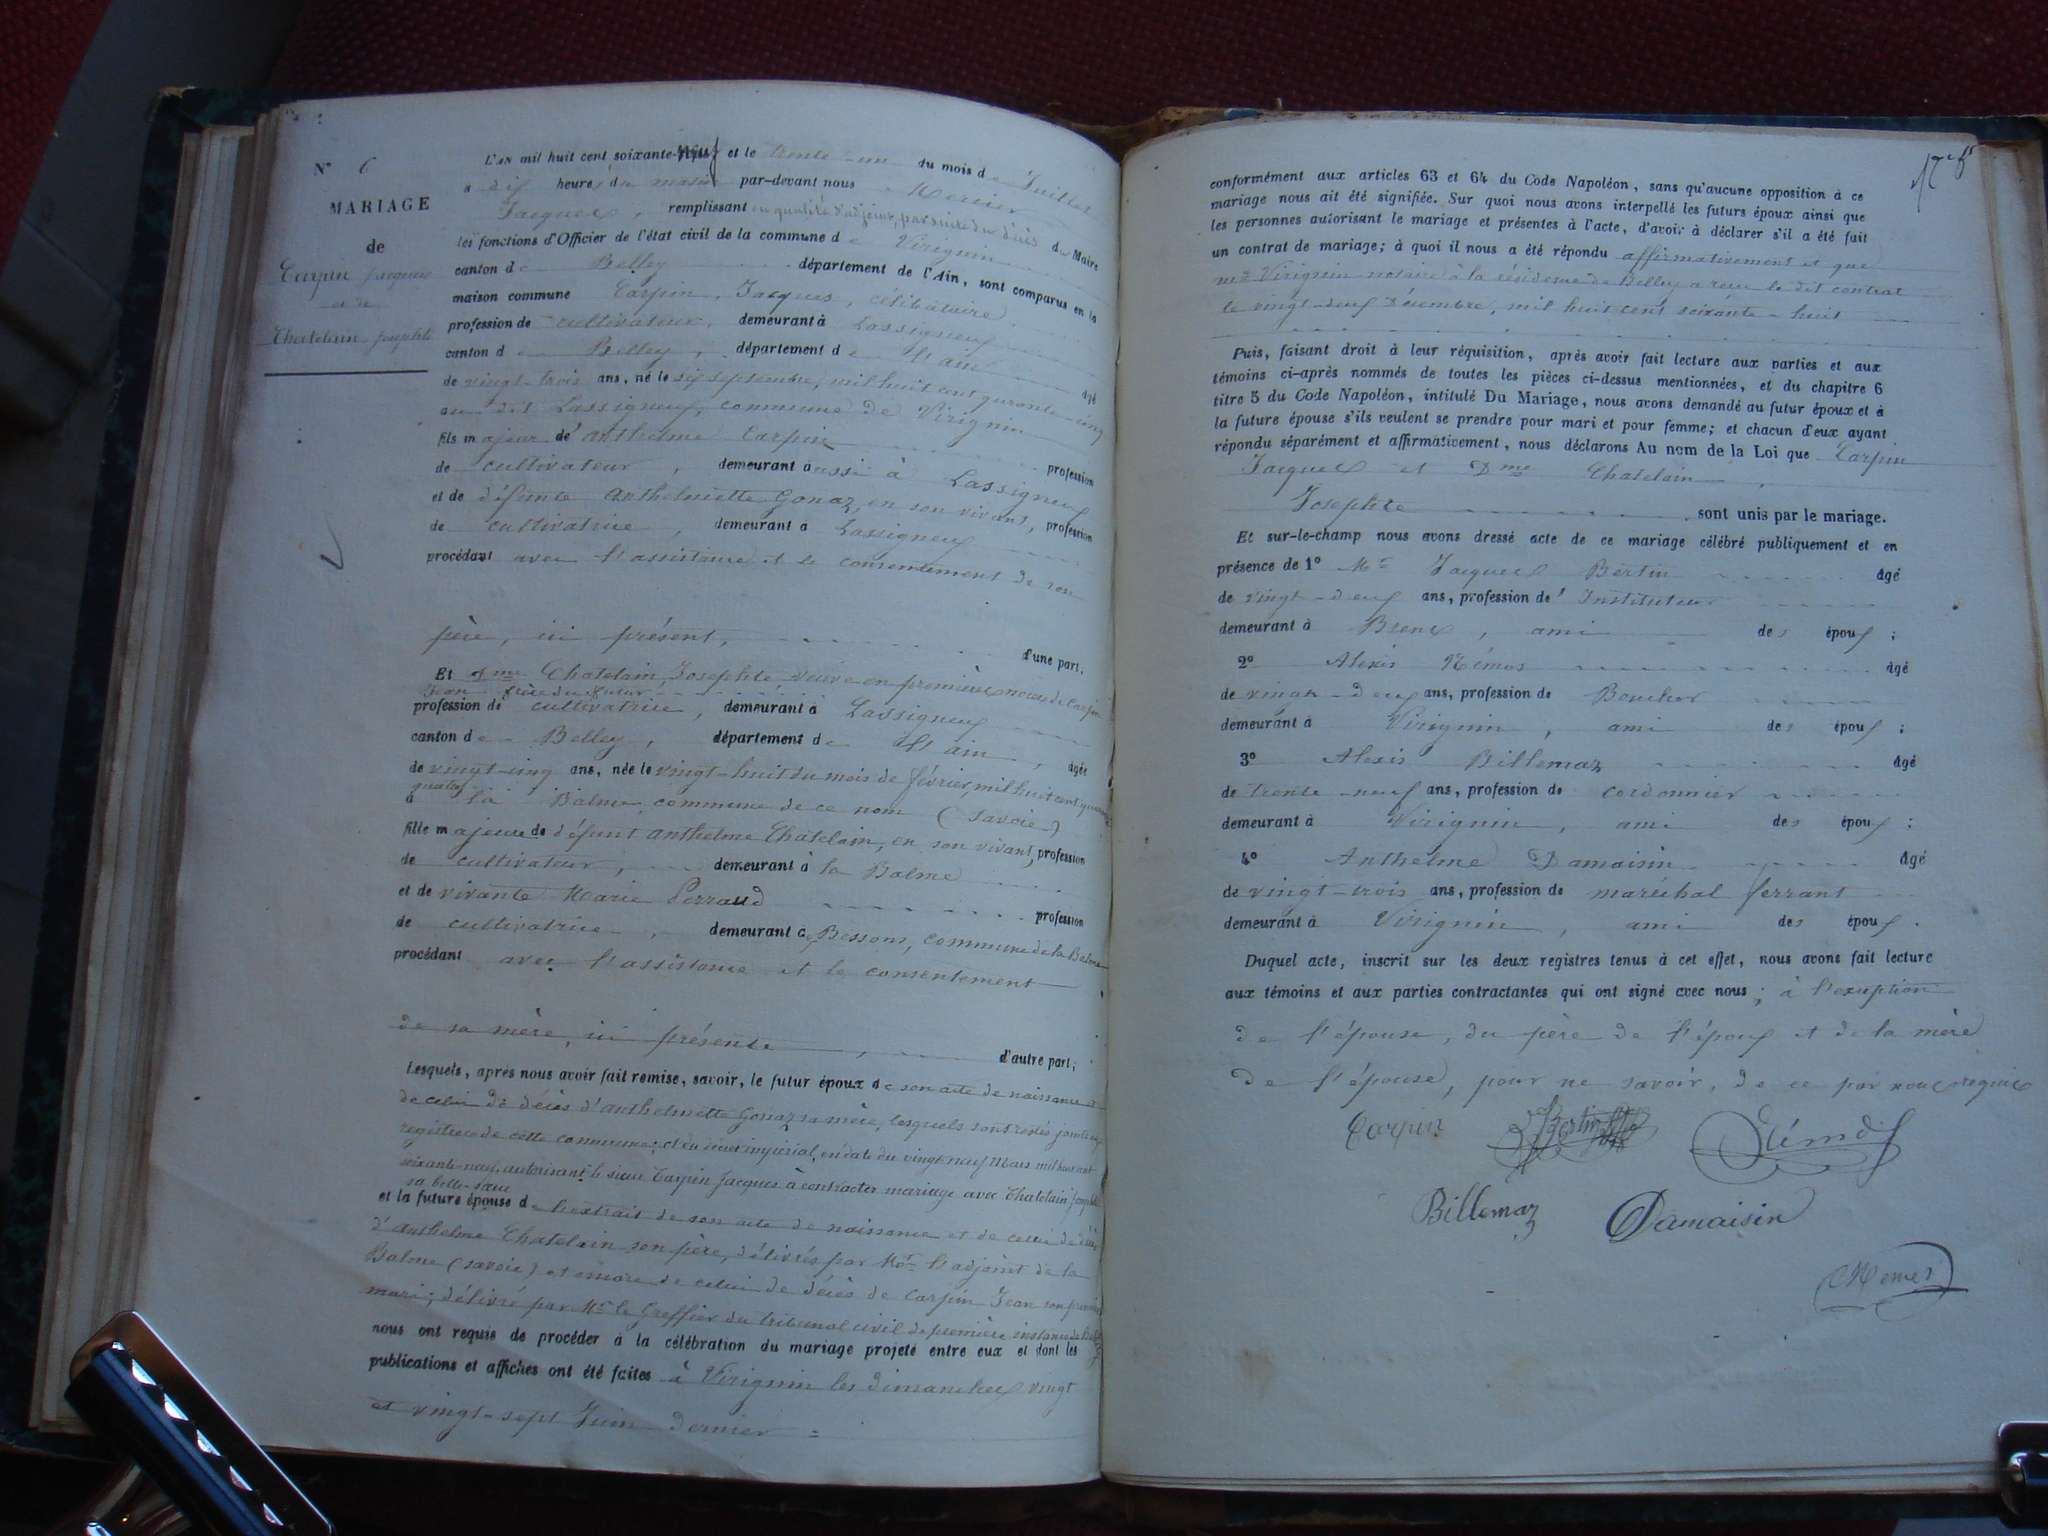 N° 6
MARIAGE
de
Carpin Jacques
et de
Chatelain Josephte
L'AN mil huit cent soixante-neuf et le trente-un du mois de Juillet
à dix heures du matin par-devant nous Mercier
Jacques, remplissant en qualité d'adjoint, par suite du décès du Maire
les fonctions d'Officier de l'état civil de la commune de Virignin
canton de Belley département de l'Ain, sont comparus en la
maison commune Carpin, Jacques, célibataire
profession de cultivateur, demeurant à Lassigneux
canton de Belley, département de l'ain âgé
de vingt-trois ans, né le dix septembre, mil huit cent quarante-cinq
au dit Lassigneux, commune de Virignin
fils majeur de anthelme Carpin profession
de cultivateur, demeurant aussi à Lassigneux
et de défunte Anthelmette Gonaz, en son vivant, profession
de cultivatrice, demeurant à Lassigneux
procédant avec l'assistance et le consentement de son
père, ici présent, d'une part,
Et Dme Chatelain, Josephte veuve en premières noces de Carpin
Jean frère du futur
profession de cultivatrice, demeurant à Lassigneux
canton de Belley, département de l'ain, âgée
de vingt-cinq ans, née le vingt-huit du mois de février, mil huit cent quarante
quatre
à la Balme commune de ce nom (Savoie)
fille majeure de défunt anthelme Chatelain, en son vivant, profession
de cultivateur, demeurant à la Balme
et de vivante Marie Perraud profession
de cultivatrice, demeurant à Bessons, commune de la Balme
procédant avec l'assistance et le consentement
de sa mère, ici présente, d'autre part;
Lesquels, après nous avoir fait remise, savoir, le futur époux de son acte de naissance et
de celui de décès d'anthelmette Gonaz sa mère, lesquels sont restés joints aux
registres de cette commune; et du décret impérial, en date du vingt neuf Mars mil huit cent
soixante-neuf, autorisant le sieur Carpin Jacques à contracter mariage avec Chatelain Josephte
sa belle-sœur
et la future épouse de l'extrait de son acte de naissance et de celui de décès
d'anthelme Chatelain son père, délivrés par Mr l'adjoint de la
Balme (Savoie) et encore de celui de décès de Carpin Jean son premier
mari; délivré par Mr le Greffier du tribunal civil de première instance de Belley
nous ont requis de procéder à la célébration du mariage projeté entre eux et dont les
publications et affiches ont été faites à Virignin les dimanches vingt
et vingt-sept Juin dernier =
conformément aux articles 63 et 64 du Code Napoléon, sans qu'aucune opposition à ce
mariage nous ait été signifiée. Sur quoi nous avons interpellé les futurs époux ainsi que
les personnes autorisant le mariage et présentes à l'acte, d'avoir à déclarer s'il a été fait
un contrat de mariage; à quoi il nous a été répondu affirmativement et que
me Virignin notaire à la résidence de Belley a reçu le dit contrat
le vingt-deux décembre, mil huit cent soixante-huit
Puis, faisant droit à leur réquisition, après avoir fait lecture aux parties et aux
témoins ci-après nommés de toutes les pièces ci-dessus mentionnées, et du chapitre 6
titre 5 du Code Napoléon, intitulé Du Mariage, nous avons demandé au futur époux et à
la future épouse s'ils veulent se prendre pour mari et pour femme; et chacun d'eux ayant
répondu séparément et affirmativement, nous déclarons Au nom de la Loi que Carpin
Jacques et Dme Chatelain
Josephte, sont unis par le mariage.
Et sur-le-champ nous avons dressé acte de ce mariage célébré publiquement et en
présence de 1° Mr Jacques Bertin âgé
de vingt-deux ans, profession d'Instituteur
demeurant à Brens, ami des époux;
2° Alexis Némos âgé
de vingt-deux ans, profession de Boucher
demeurant à Virignin, ami des époux;
3° Alexis Billemaz âgé
de trente-neuf ans, profession de cordonnier
demeurant à Virignin, ami des époux;
4° Anthelme Damaisin âgé
de vingt-trois ans, profession de maréchal ferrant
demeurant à Virignin, ami des époux.
Duquel acte, inscrit sur les deux registres tenus à cet effet, nous avons fait lecture
aux témoins et aux parties contractantes qui ont signé avec nous; à l'exception
de l'épouse, du père de l'époux et de la mère
de l'épouse, pour ne savoir, de ce par nous requis
Carpin Bertin
Billemaz Damaisin